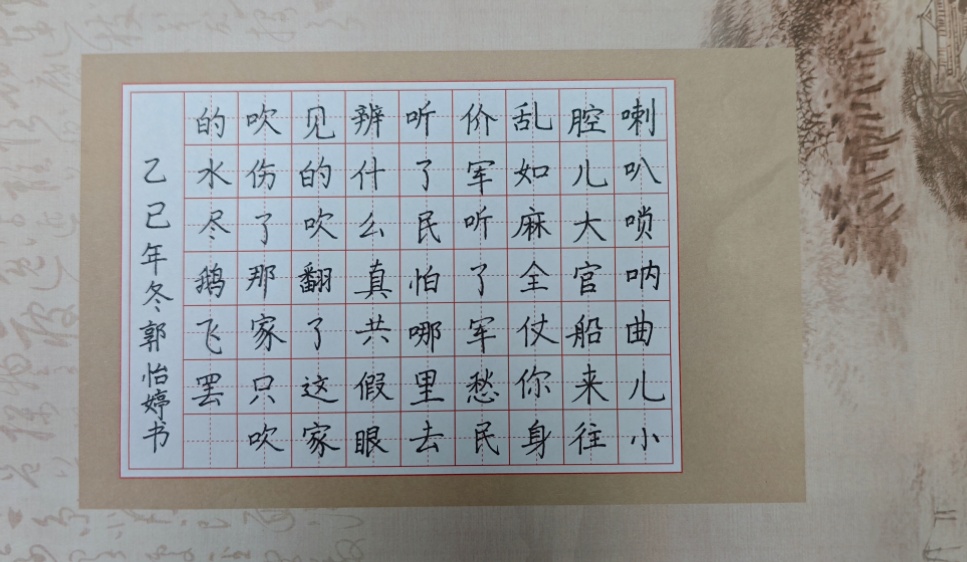 喇叭唢呐曲儿小
腔儿大官船来往
乱如麻全仗你身
价军听了军愁民
听了民怕哪里去
辨什么真共假眼
见的吹翻了这家
吹伤了那家只吹
的水尽鹅飞罢
乙巳年冬郭怡婷书